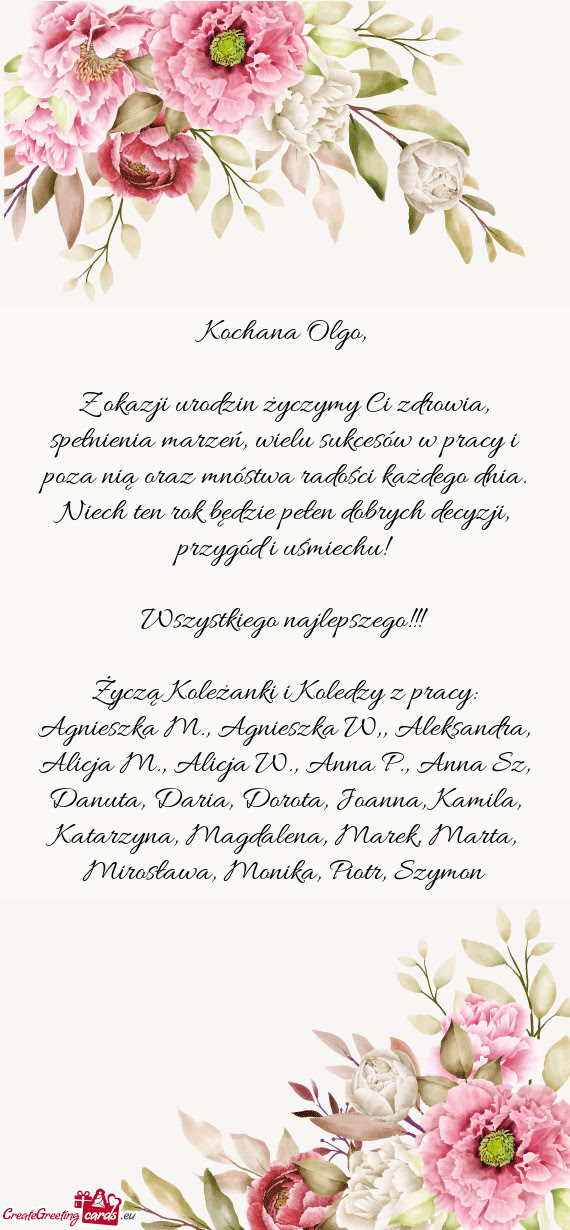 Kochana Olgo,
Z okazji urodzin życzymy Ci zdrowia,
spełnienia marzeń, wielu sukcesów w pracy i
poza nią oraz mnóstwa radości każdego dnia.
Niech ten rok będzie pełen dobrych decyzji,
przygód i uśmiechu!
Wszystkiego najlepszego!!!
Życzą Koleżanki i Koledzy z pracy:
Agnieszka M., Agnieszka W,, Aleksandra,
Alicja M., Alicja W., Anna P., Anna Sz,
Danuta, Daria, Dorota, Joanna, Kamila,
Katarzyna, Magdalena, Marek, Marta,
Mirosława, Monika, Piotr, Szymon
CreateGreeting cards .eu